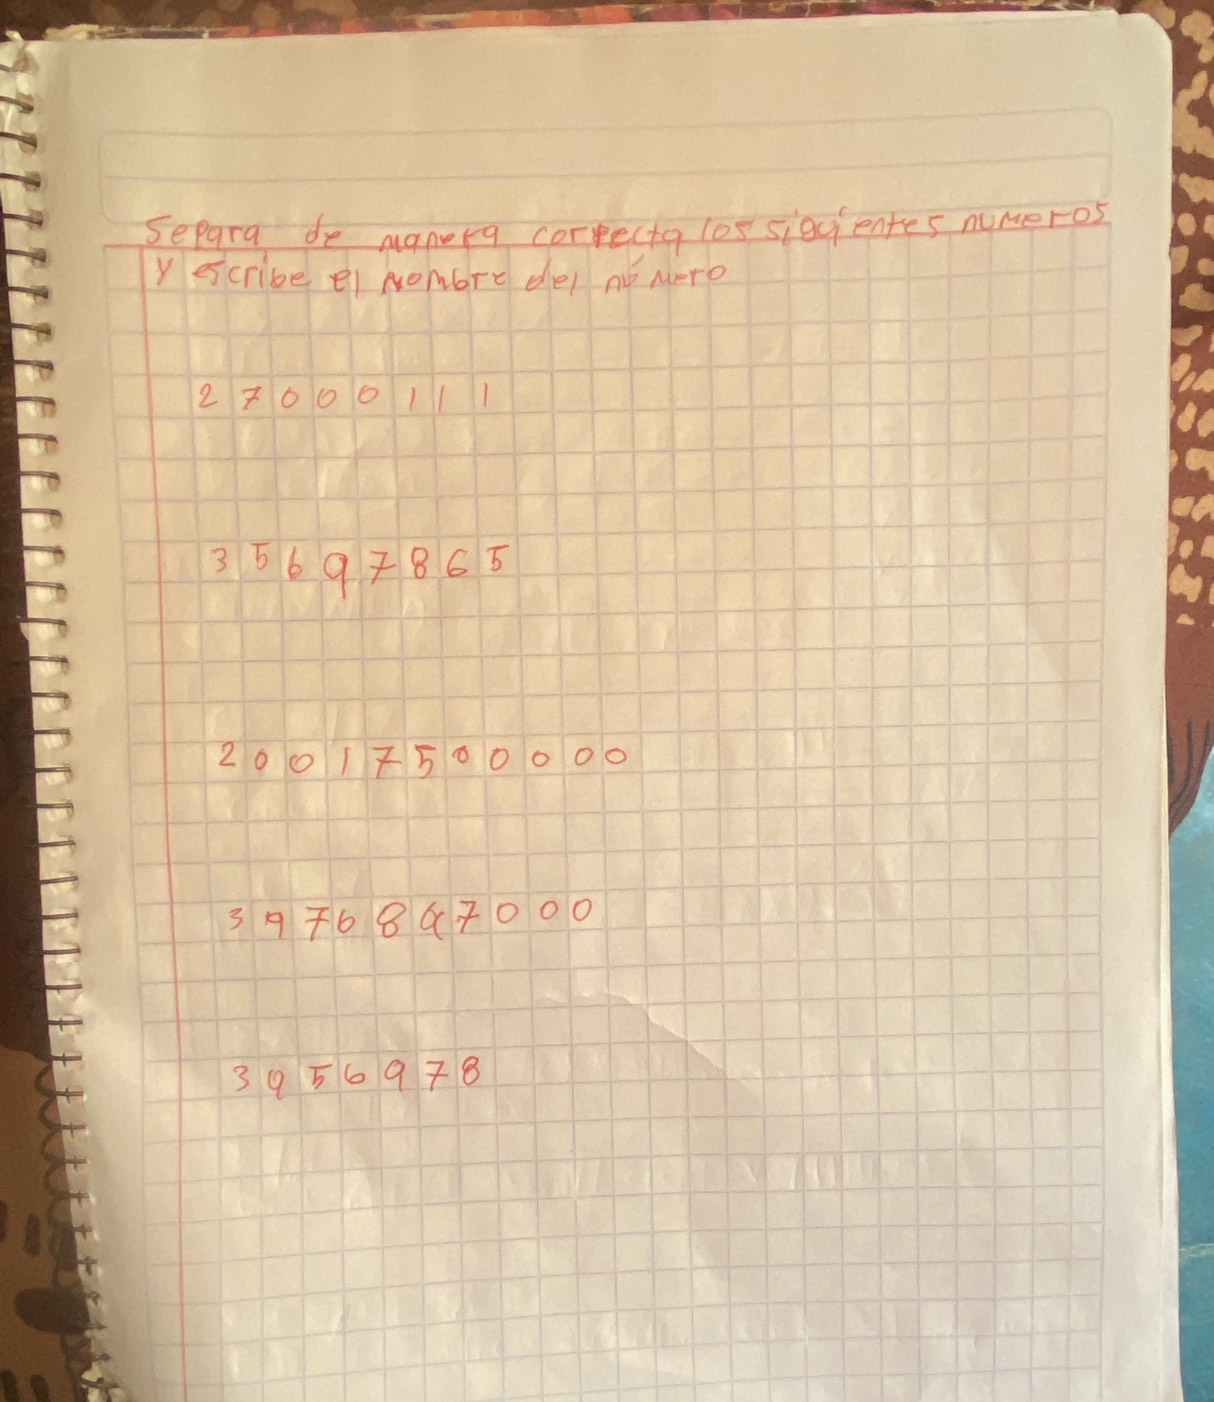 Separa de manera correcta los siguientes numeros
y escribe el nombre del número
27000111
35697865
20017500000
39768 7000
3956978